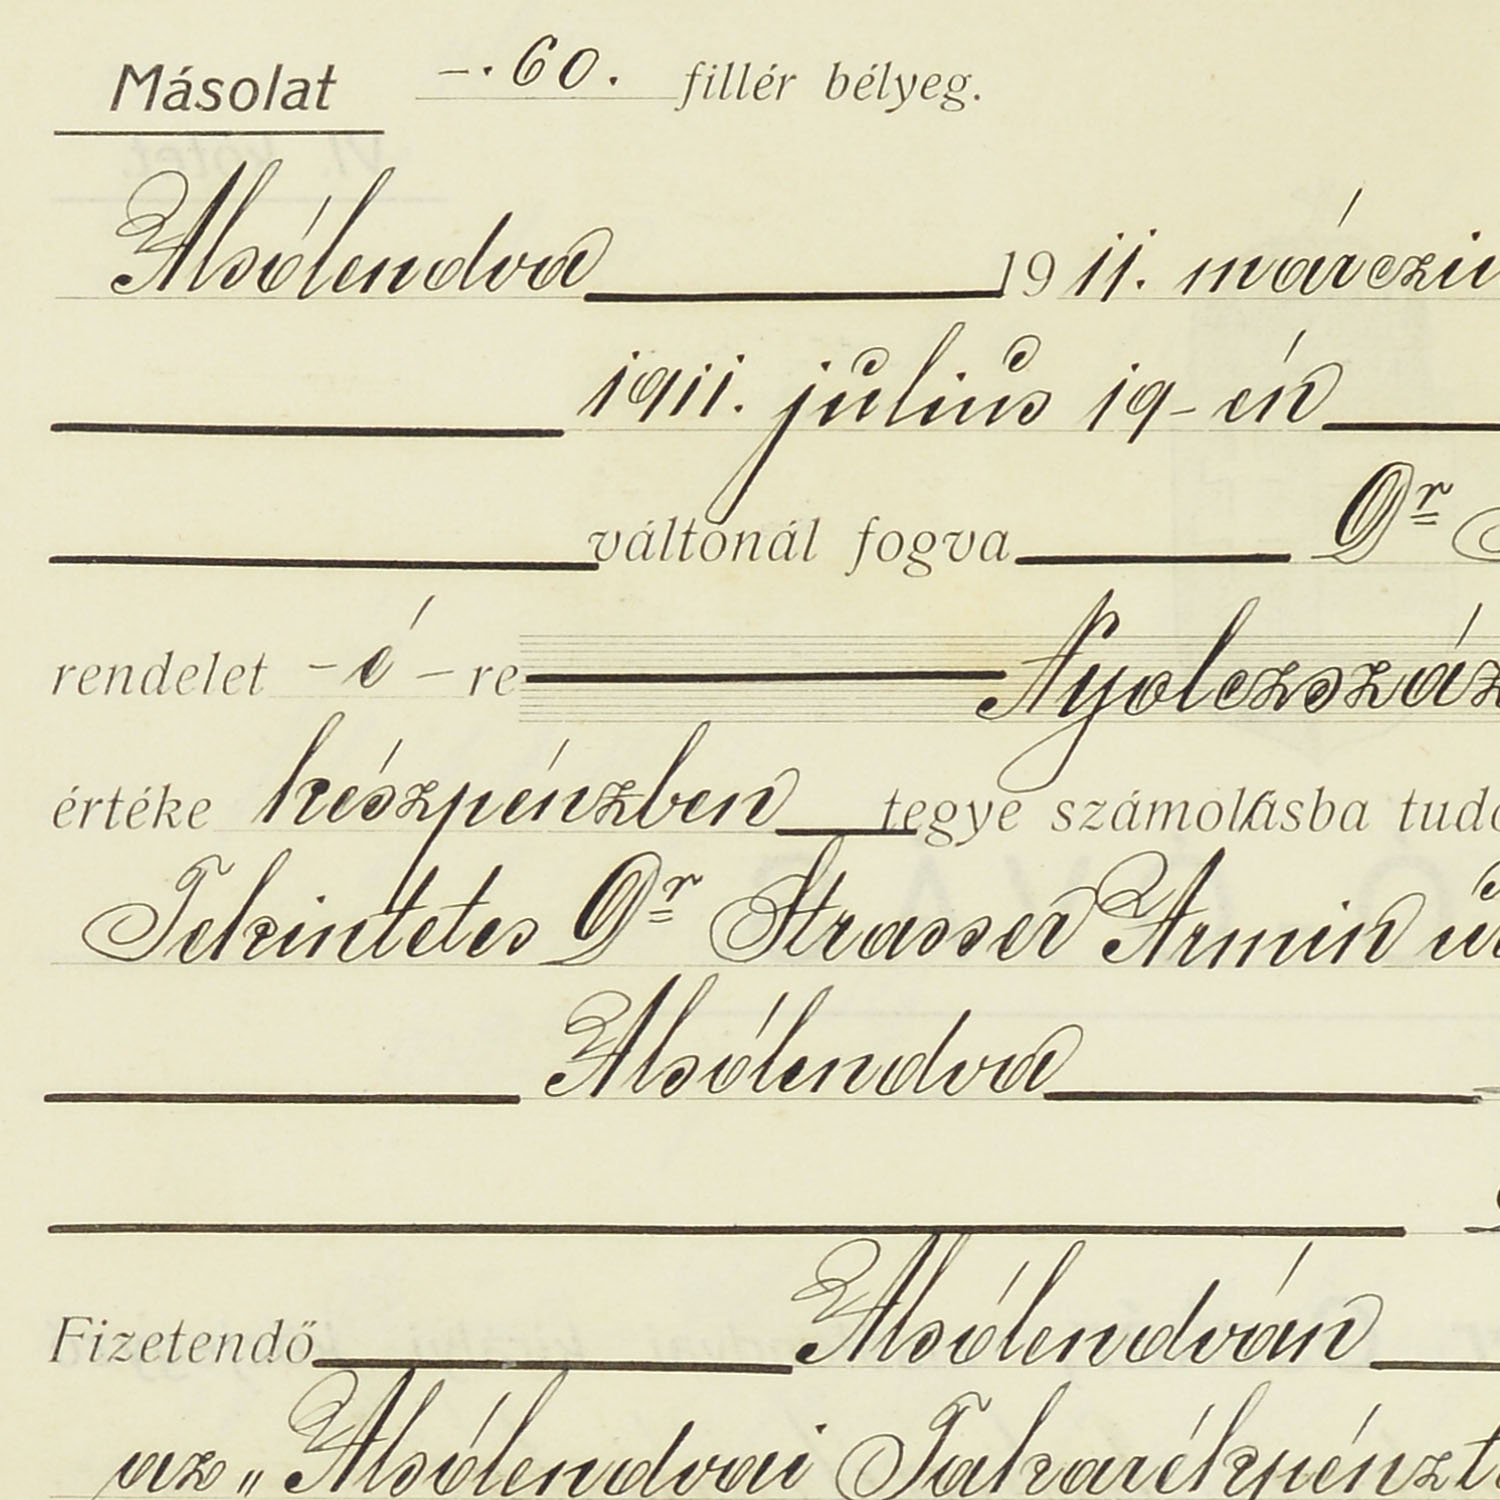 Másolat -.60. fillér bélyeg.
Alsólendva 1911. márczi
1911. július 19-én
váltónál fogva Dr
rendelet -é- re Nyolczszáz
értéke készpénzben tegye számolásba
Tekintetes Dr Strasser Armin
Alsólendva
Fizetendő Alsólendván
az „Alsólendvai Takarékpénzt